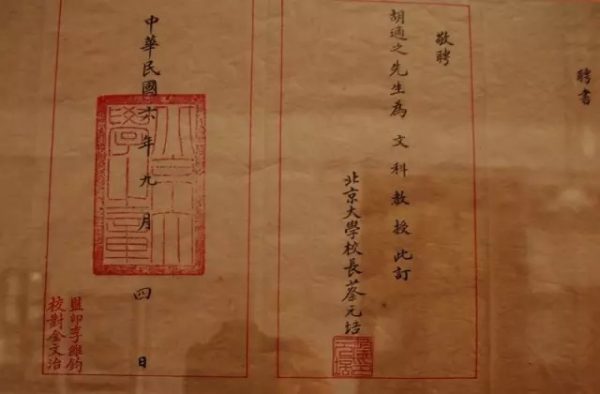 聘書
敬聘
胡適之先生為文科教授此訂
北京大學校長蔡元培
中華民國六年九月四日
監印李維鈞
校對金文治